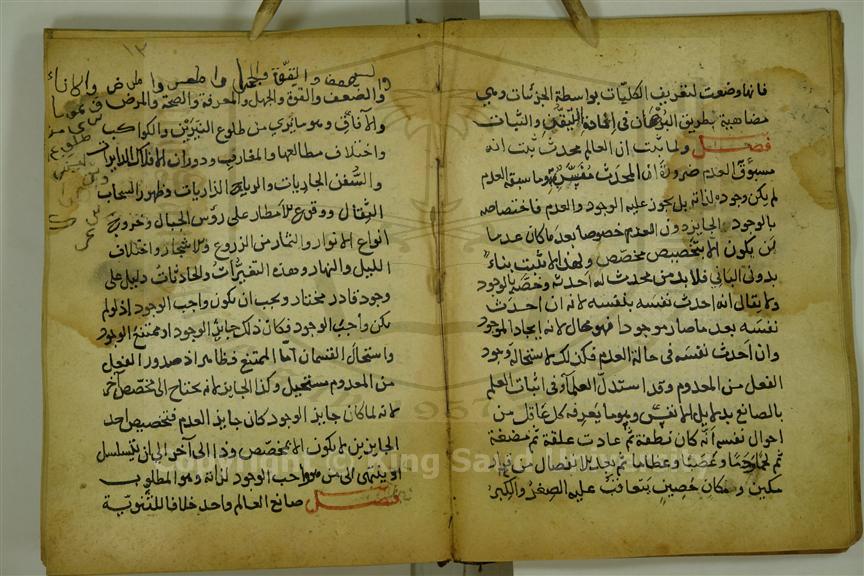 فانها وضعت لتعريف الكليات بواسطة الجزئيات وهي
مضاهية بطريق البرهان في افادة التيقن والثبات
فصل ولما ثبت ان العالم محدث ثبت انه
مسبوق العدم ضرورة ان المحدث مفسر وما سبقه العدم
لم يكن وجوده لذاته بل يجوز عليه الوجود والعدم فاختصاصه
بالوجود الجايز دون العدم خصوصا بعد ما كان عدما
لن يكون الا بتخصيص مخصص ولهذا لا يثبت بناء
بدون الباني فلا بد من محدث له احدثه وخصه بالوجود
ولا يقال انه احدث نفسه بنفسه لانه ان احدث
نفسه بعد ما صار موجودا فهو محال لانه ايجاد الموجود
وان احدث نفسه في حالة العدم فكذلك لاستحالة وجود
الفعل من المعدوم وقد استدل العلماء في اثبات العلم
بالصانع بدلايل الانفس وهو ما يعرفه كل عاقل من
احوال نفسه انه كان نطفة ثم عادت علقة ثم مضغة
ثم لحما ودما وعصبا وعظاما ثم بعد الانفصال من قرار
مكين ومكان حصين يتعاقب عليه الصغر والكبر
١٢
والضعف والقوة والجهل والمعرفة والصحة والمرض
والآفاق وهو ما يرى من طلوع النيرين والكواكب
واختلاف مطالعها والمغارب ودوران الافلاك الدايرات
والسفن الجاريات والرياح الذاريات وظهور السحاب
الثقال ووقوع الامطار على رؤس الجبال وخروج
انواع الانوار والثمار من الزروع والاشجار واختلاف
الليل والنهار وهذه التغيرات والحادثات دليل على
وجود قادر مختار ويجب ان يكون واجب الوجود اذ لو لم
يكن واجب الوجود فكان ذلك جايز الوجود او ممتنع الوجود
واستحال القسمان اما الممتنع فظاهر اذ صدور الفعل
من المعدوم مستحيل وكذا الجايز لانه يحتاج الى مخصص آخر
لانه لما كان جايز الوجود كان جايز العدم فتخصيص احد
الجايزين لا يكون الا بمخصص وذا الى آخر الى ان يتسلسل
او ينتهى الى من هو واجب الوجود لذاته وهو المطلوب
فصل صانع العالم واحد خلافا للثنوية
Copyright © King Saud University
1957